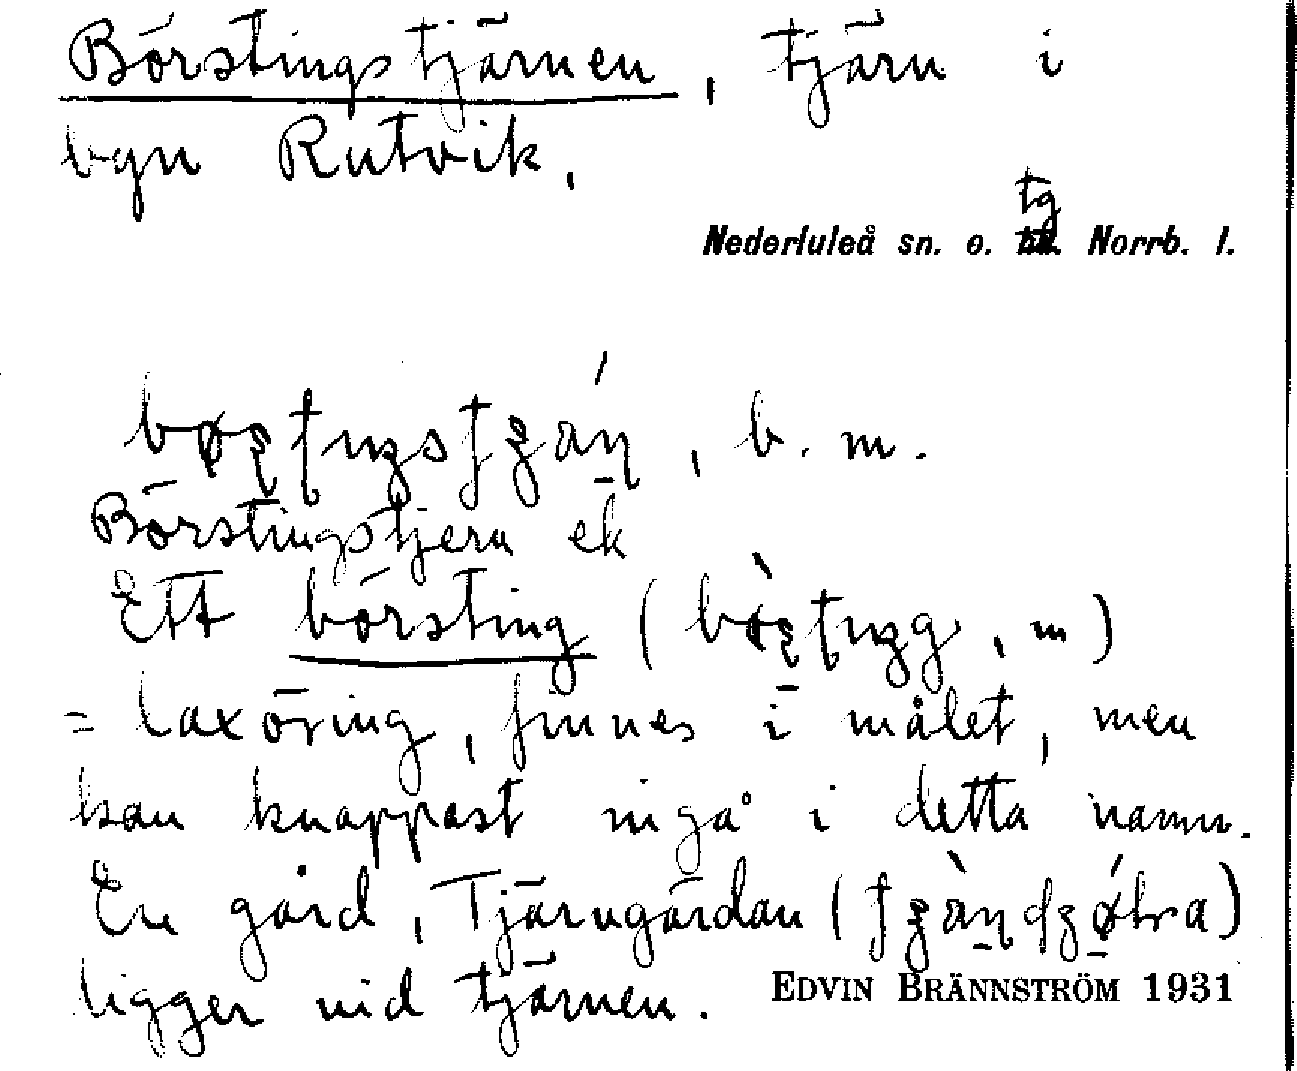 Börstingstjärnen, tjärn i
byn Rutvik.
tg
Nederluleå sn. o. Norrb. l.
b. m.
Börstingstjern ek
Ett börsting ( , m)
= laxöring, finnes i målet, men
kan knappast ingå i detta namn.
En gård, Tjärngårdan ( )
ligger vid tjärnen.
EDVIN BRÄNNSTRÖM 1931